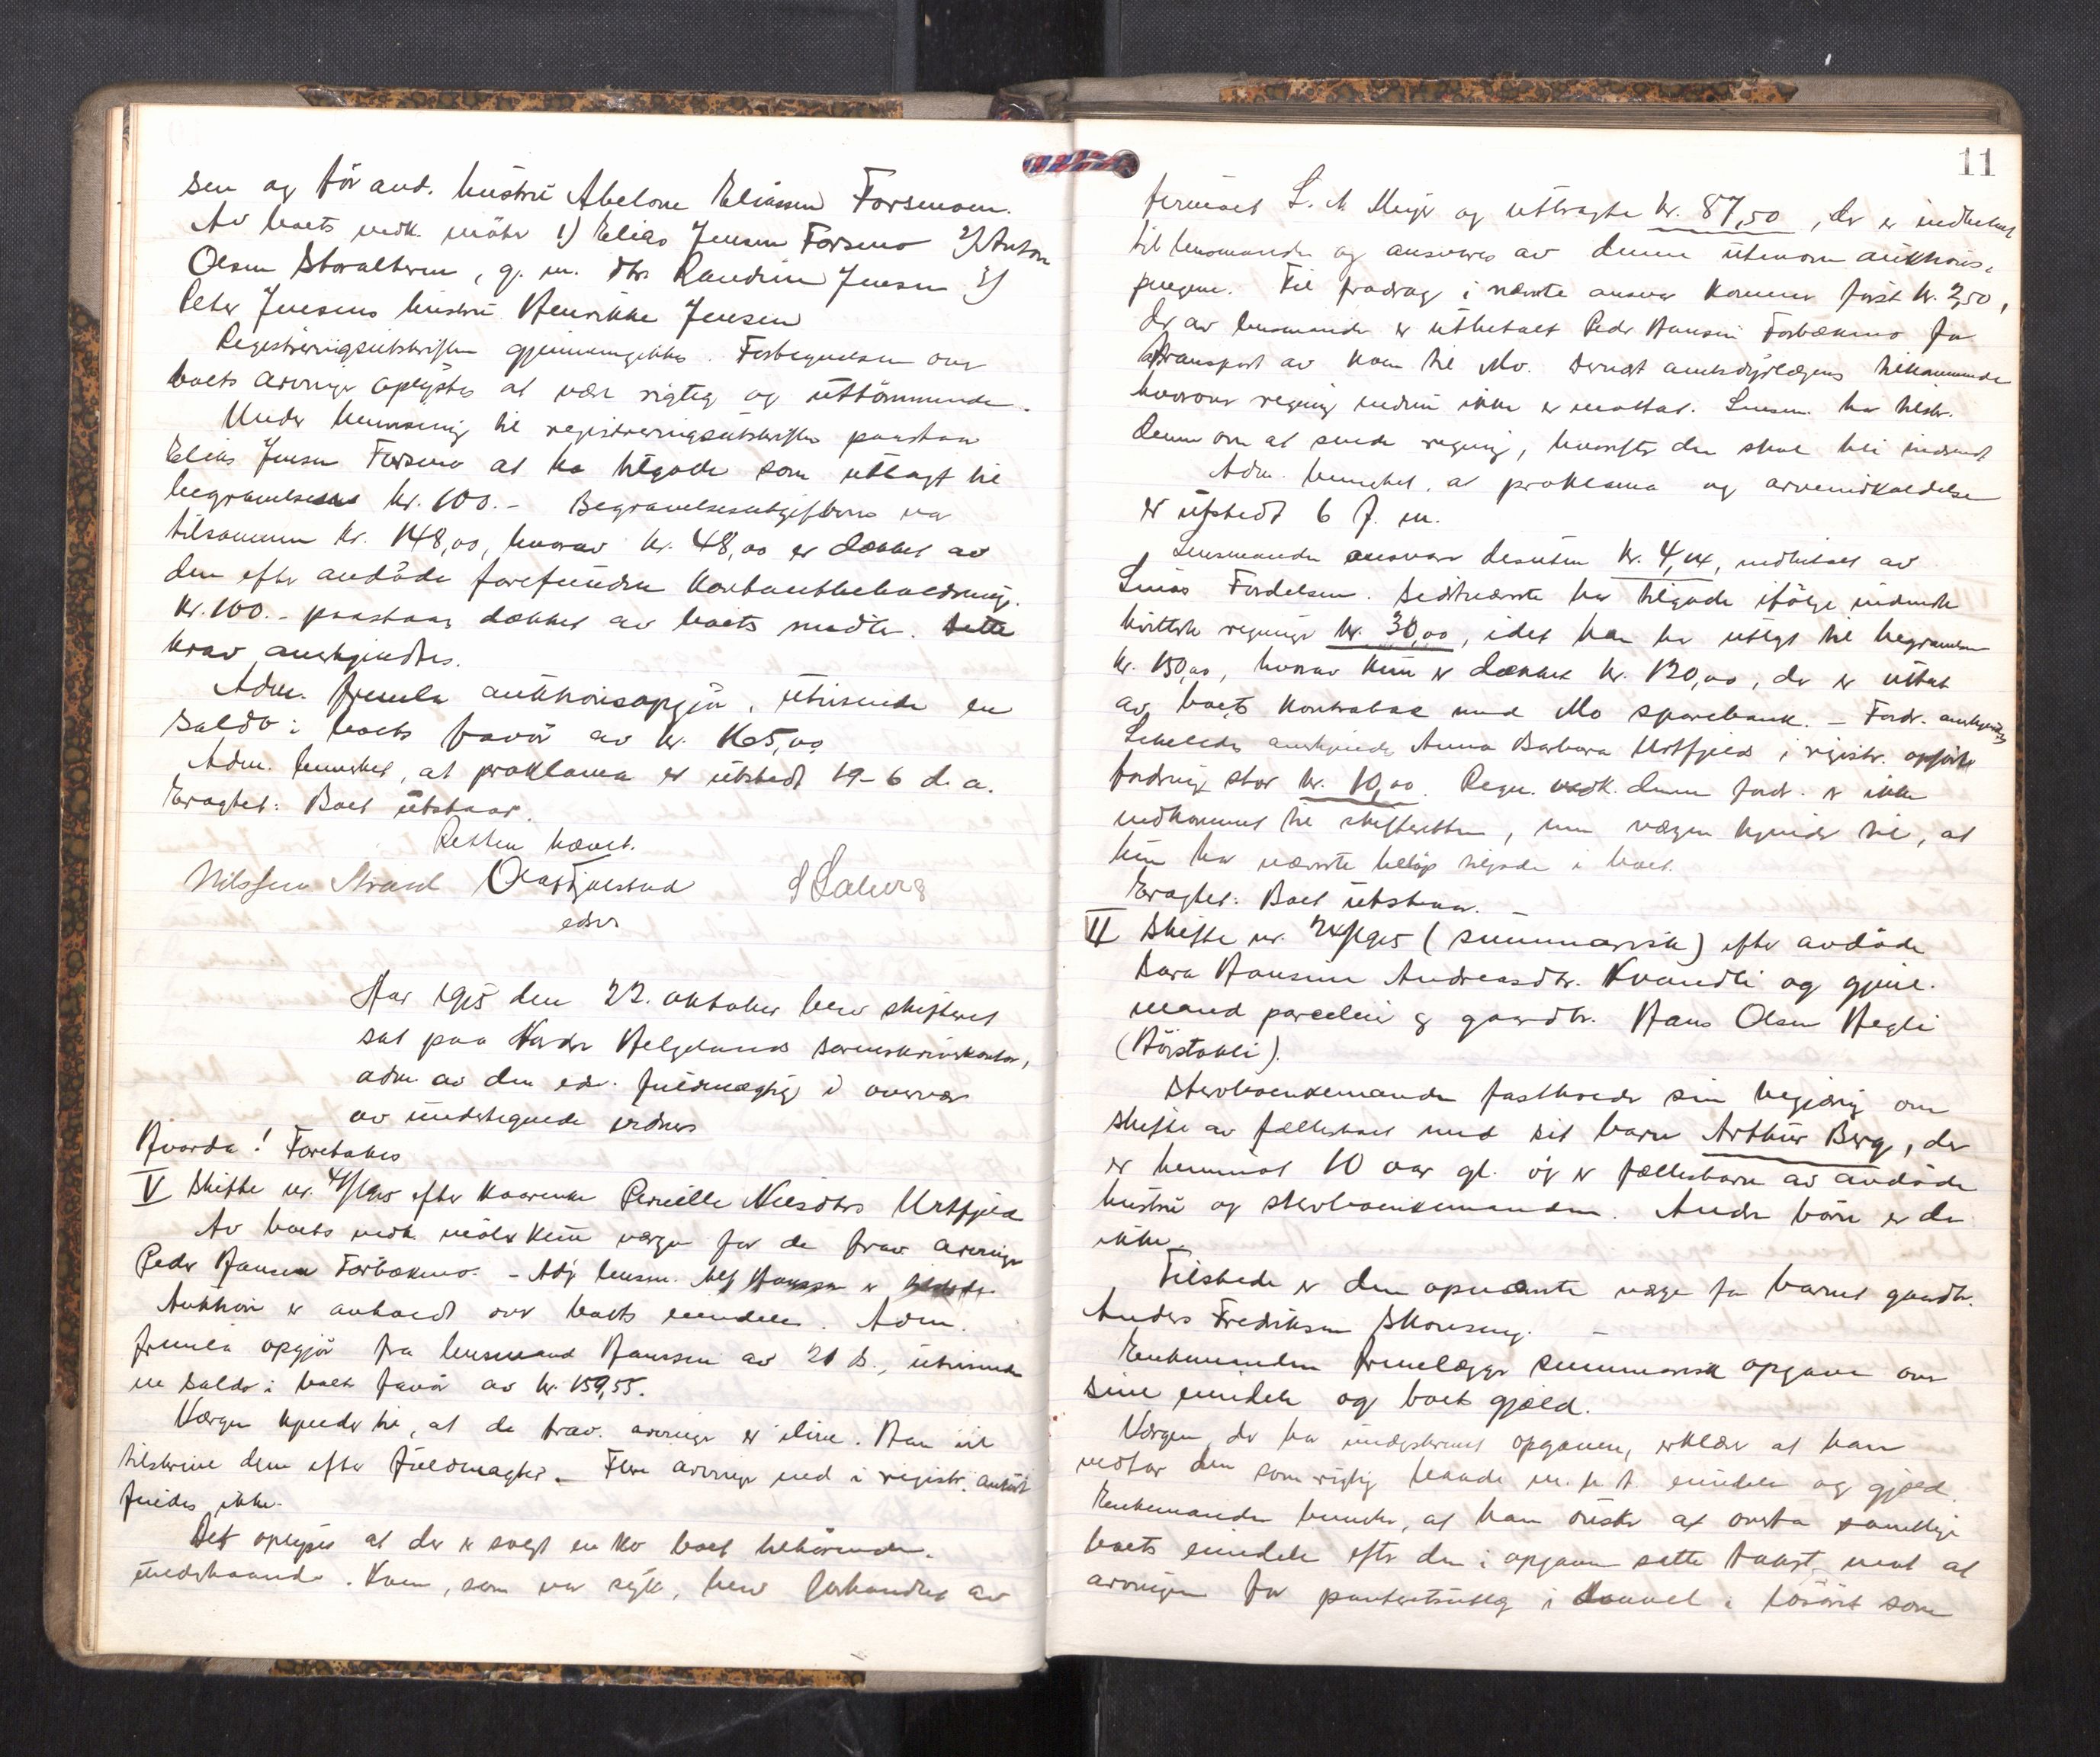 sen og för avd. hustru Abelone Eliassen Forsmoen.
Av boets vedk. möter 1) Elias Jensen Forsmo 2) Anton
Olsen Storalteren, g. m. dtr. Jensen 3)
Peter Jensens hustru Henrikke Jensen
Registreringsutskriften gjennemgikkes. Fortegnelsen over
boets arvinger oplystes at være rigtig og uttömmende.
Under henvisning til registreringsutskriften paastaar
Elias Jensen Forsmo at ha tilgode som utlagt til
begravelsen kr. 100.- Begravelsesutgifterne var
tilsammen kr. 148,00, hvorav kr. 48,00 er dækket av
den efter avdöde forefundne kontantbeholdning.
Kr. 100.- paastaaes dækket av boets midler. Dette
krav anerkjendtes.
Adm. fremla auktionsopgjör, utvisende en
saldo i boets favör av kr. 165,00
Adm. bemerket, at proklama er utstedt 19-6 d. a.
Eragtet: Boet utstaar.
Retten hævet.
Nils Jensen Strand Olaf Fjelstad
edsv
Aar 1915 den 22. oktober blev skifteret
sat paa Nordre Helgelands sorenskriverkontor,
adm. av den edsv. fuldmægtig i overvær
av undertegnede vidner
Hvorda! Foretokes
V Skifte nr. 41/1915 efter kaarenke Pernille Nilsdtr. Urtfjeld
Av boets vedk. möter kun værgen for de frav. arvinger
Peder Hansen Forbækmo. - Adj lensm. Alf Hansen er tilstede.
Auktion er avholdt over boets eiendele. Adm.
fremla opgjör fra lensmand Hanssen av 21 ds., utvisende
en saldo i boets favör av kr. 159,55.
Værgen kjender til, at de frav. arvinger er ilive. Han vil
tilskrive dem efter fuldmagter. Flere arvinger end i registr. anfört
findes ikke.
Det oplyses at der er solgt en ko boet tilhörende
underhaanden. Koen, som var syk, blev forhandlet av
11
firmaet L. A. Meyer og utbragte kr. 87,50, der er indbetalt
til lensmanden og ansvares av denne utenom auktions-
pengene. Til fradrag i nævnte ansvar kommer först kr. 2,50,
der av lensmanden er utbetalt Peder Hansen Forbækmo for
transport av koen til Mo. Dernæst amtsdyrlægens tilkommende
hvorover regning endnu ikke er mottat. Lensm. har tilskr.
denne om at sende regning, hvorefter den skal bli indsendt
Adm. bemerket, at proklama og arveindkaldelse
er utstedt 6 f. m.
Lensmanden ansvarer desuten kr. 4,14, indbetalt av
Linås Fordelsen. Sidstnævnte har tilgode ifölge indsendte
kvitterte regninger kr. 30,00, idet han har utlagt til begravelsen
kr. 150,00, hvorav kun er dækket kr. 120,00, der er uttat
av boets kontrabok med Mo sparebank. - Fordr. anerkjendtes
Likeledes anerkjendes Anna Barbara Urtfjelds i registr. opförte
fordring stor kr. 10,00. Regn. vedk. denne fordr. er ikke
indkommet til skifteretten, men værgen kjender til, at
hun har nævnte belöp tilgode i boet.
Eragtet: Boet utstaar. -
II Skifte nr. 24/1915 (summarisk) efter avdöde
Sara Hansine Andreasdtr. Kvandli og gjenl.
mand parcelleier og gaardbr. Hans Olsen Hegli
(Börstokli).
Sterboenkemanden fastholder sin begjæring om
skifte av fællesboet med sit barn Arthur Berg, der
er henimot 10 aar gl. og er fællesbarn av avdöde
hustru og sterboenkemanden. Andre barn er der
ikke.
Tilstede er den opnævnte værge for barnet gaardbr.
Anders Fredriksen Skonseng. -
Enkemanden fremlægger summarisk opgave over
sine eiendele og boets gjæld.
Værgen, der har undertegnet opgaven, erklærer at han
vedtar den som rigtig baade m. h. t. eiendele og gjæld.
Enkemanden bemerker, at han önsker at overta samtlige
boets eiendele efter den i opgaven satte takst, mot at
arvingen faar panteretsutlæg i saavel i lösöret som